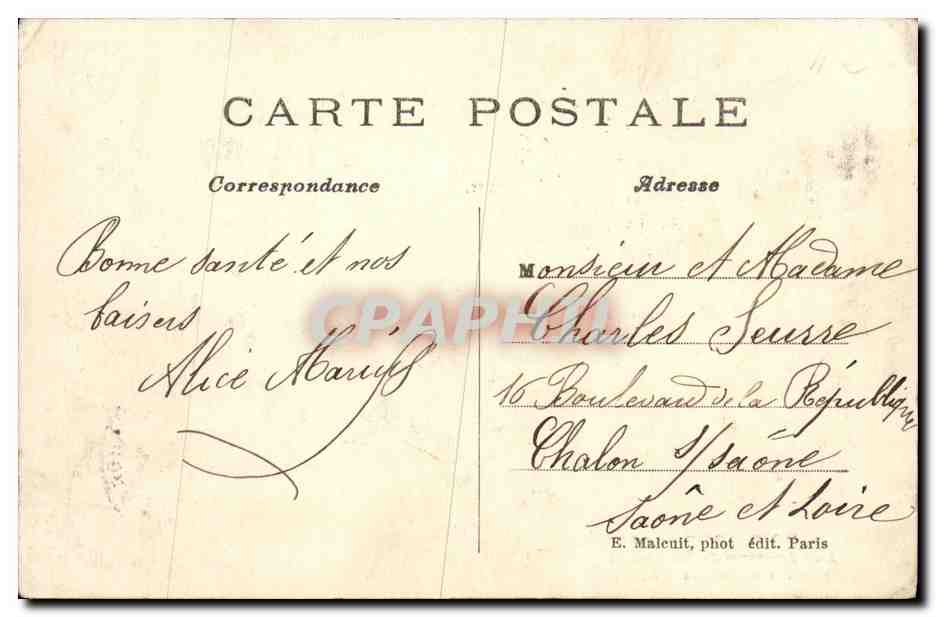 CARTE POSTALE
Correspondance
Adresse
Bonne santé et nos
baisers
Alice
Monsieur et Madame
Charles Seurre
16 Boulevard de la République
Chalon s/saône
Saône et Loire
E. Malcuit, phot édit. Paris
CPAPHIL